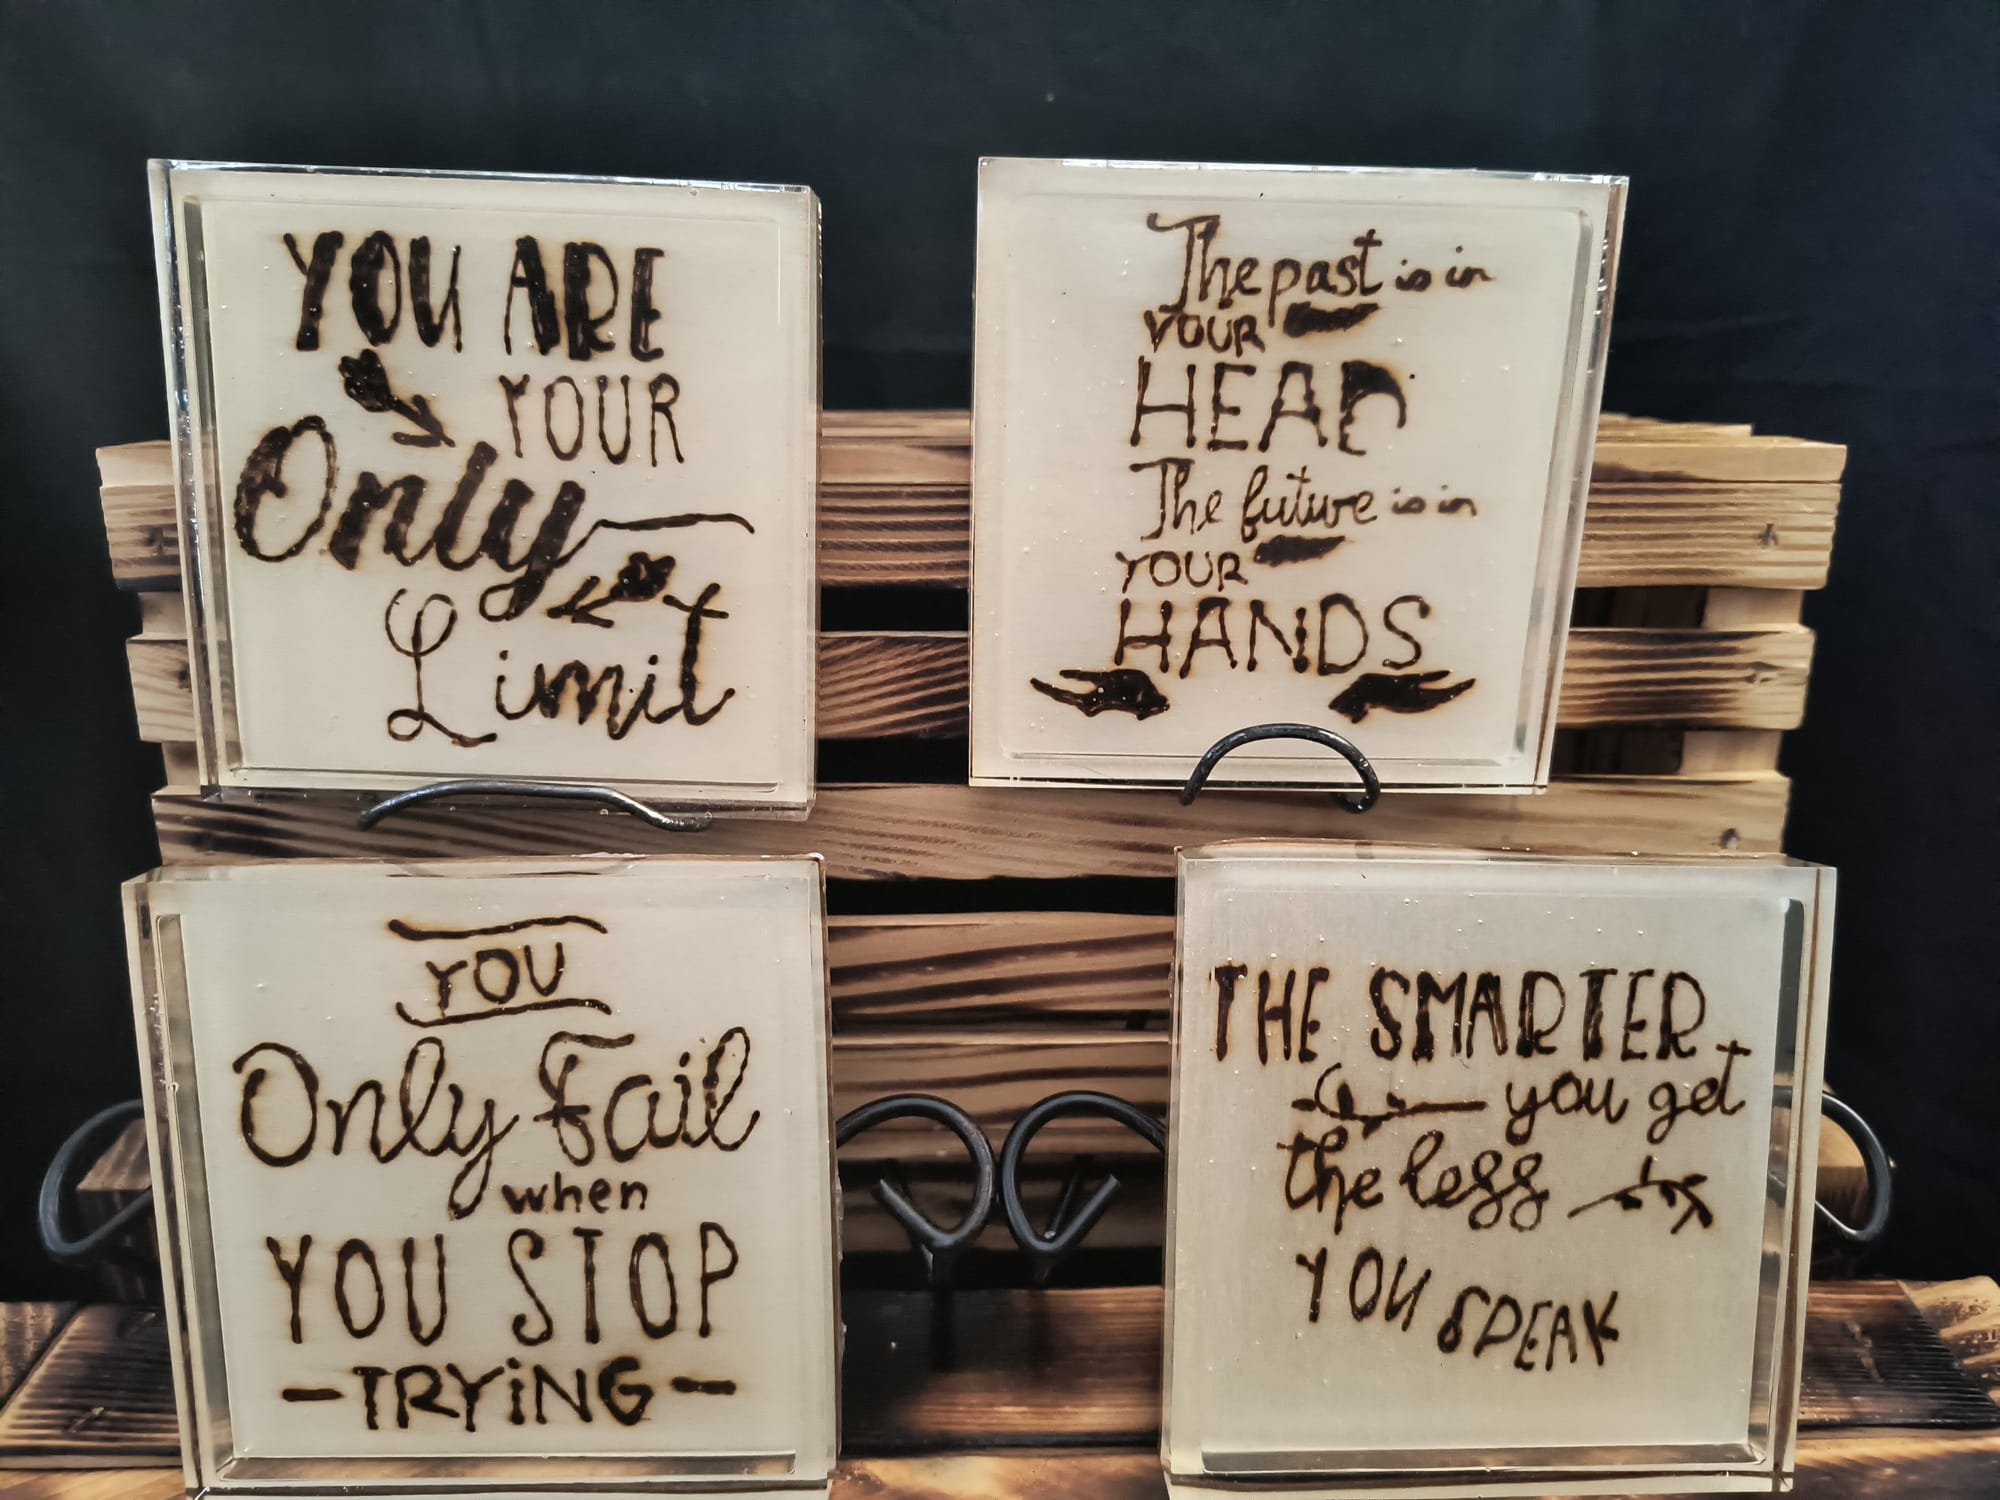 YOU ARE
YOUR
Only
Limit
The past is in
YOUR
HEAD
The future is in
YOUR
HANDS
YOU
Only Fail
when
YOU STOP
-TRYiNG-
THE SMARTER
you get
the less
YOU SPEAK